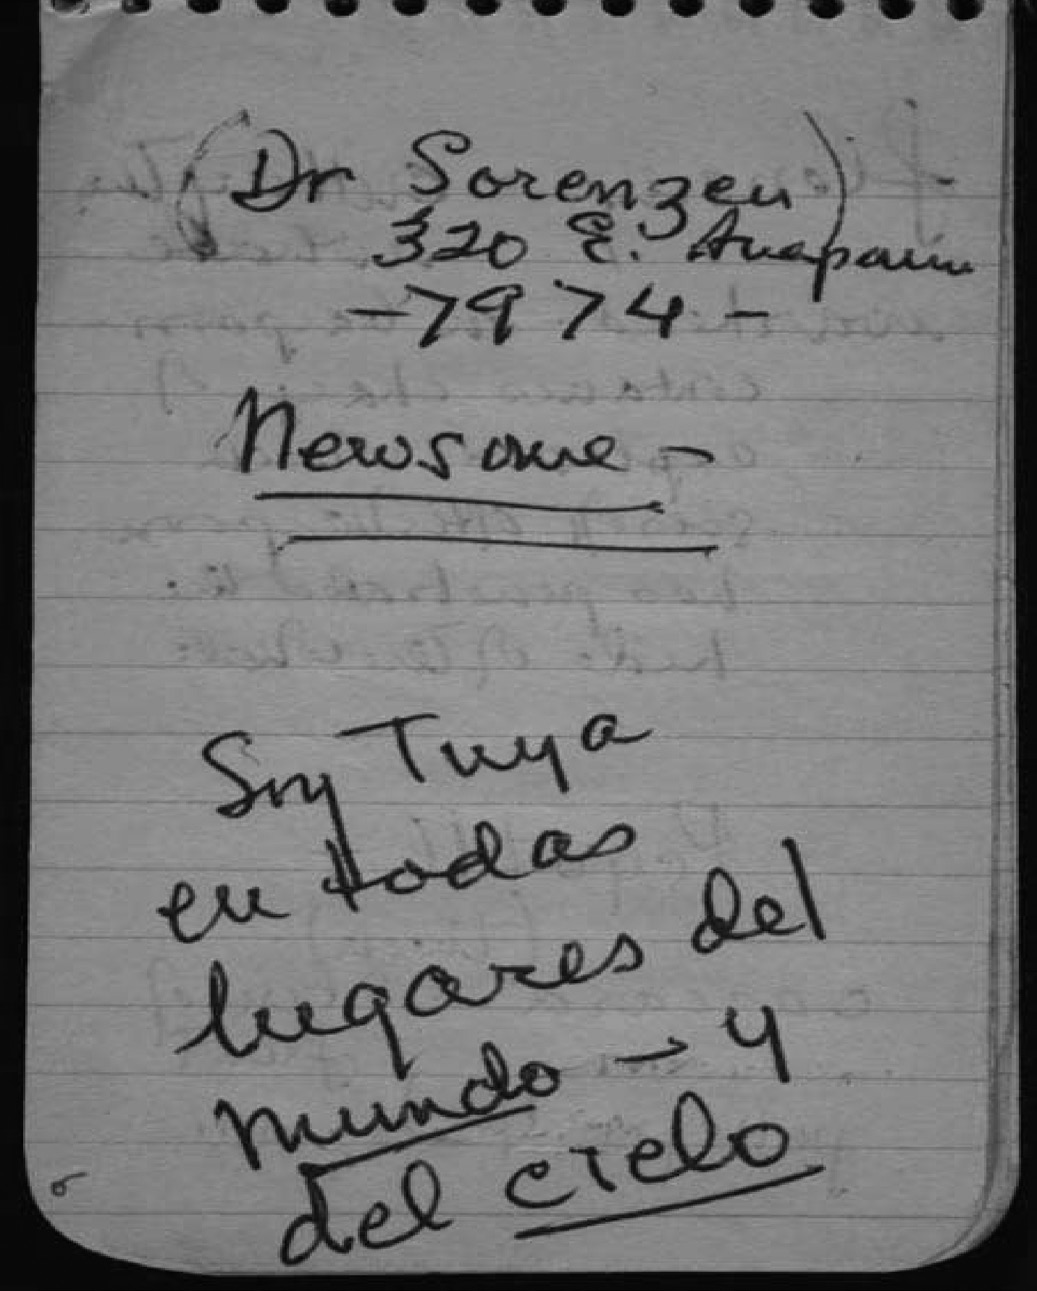 (Dr Sorenzen)
320 E. Anapamu
-7974-
Newsome -
Soy Tuya
en todas
lugares del
mundo - y
del cielo